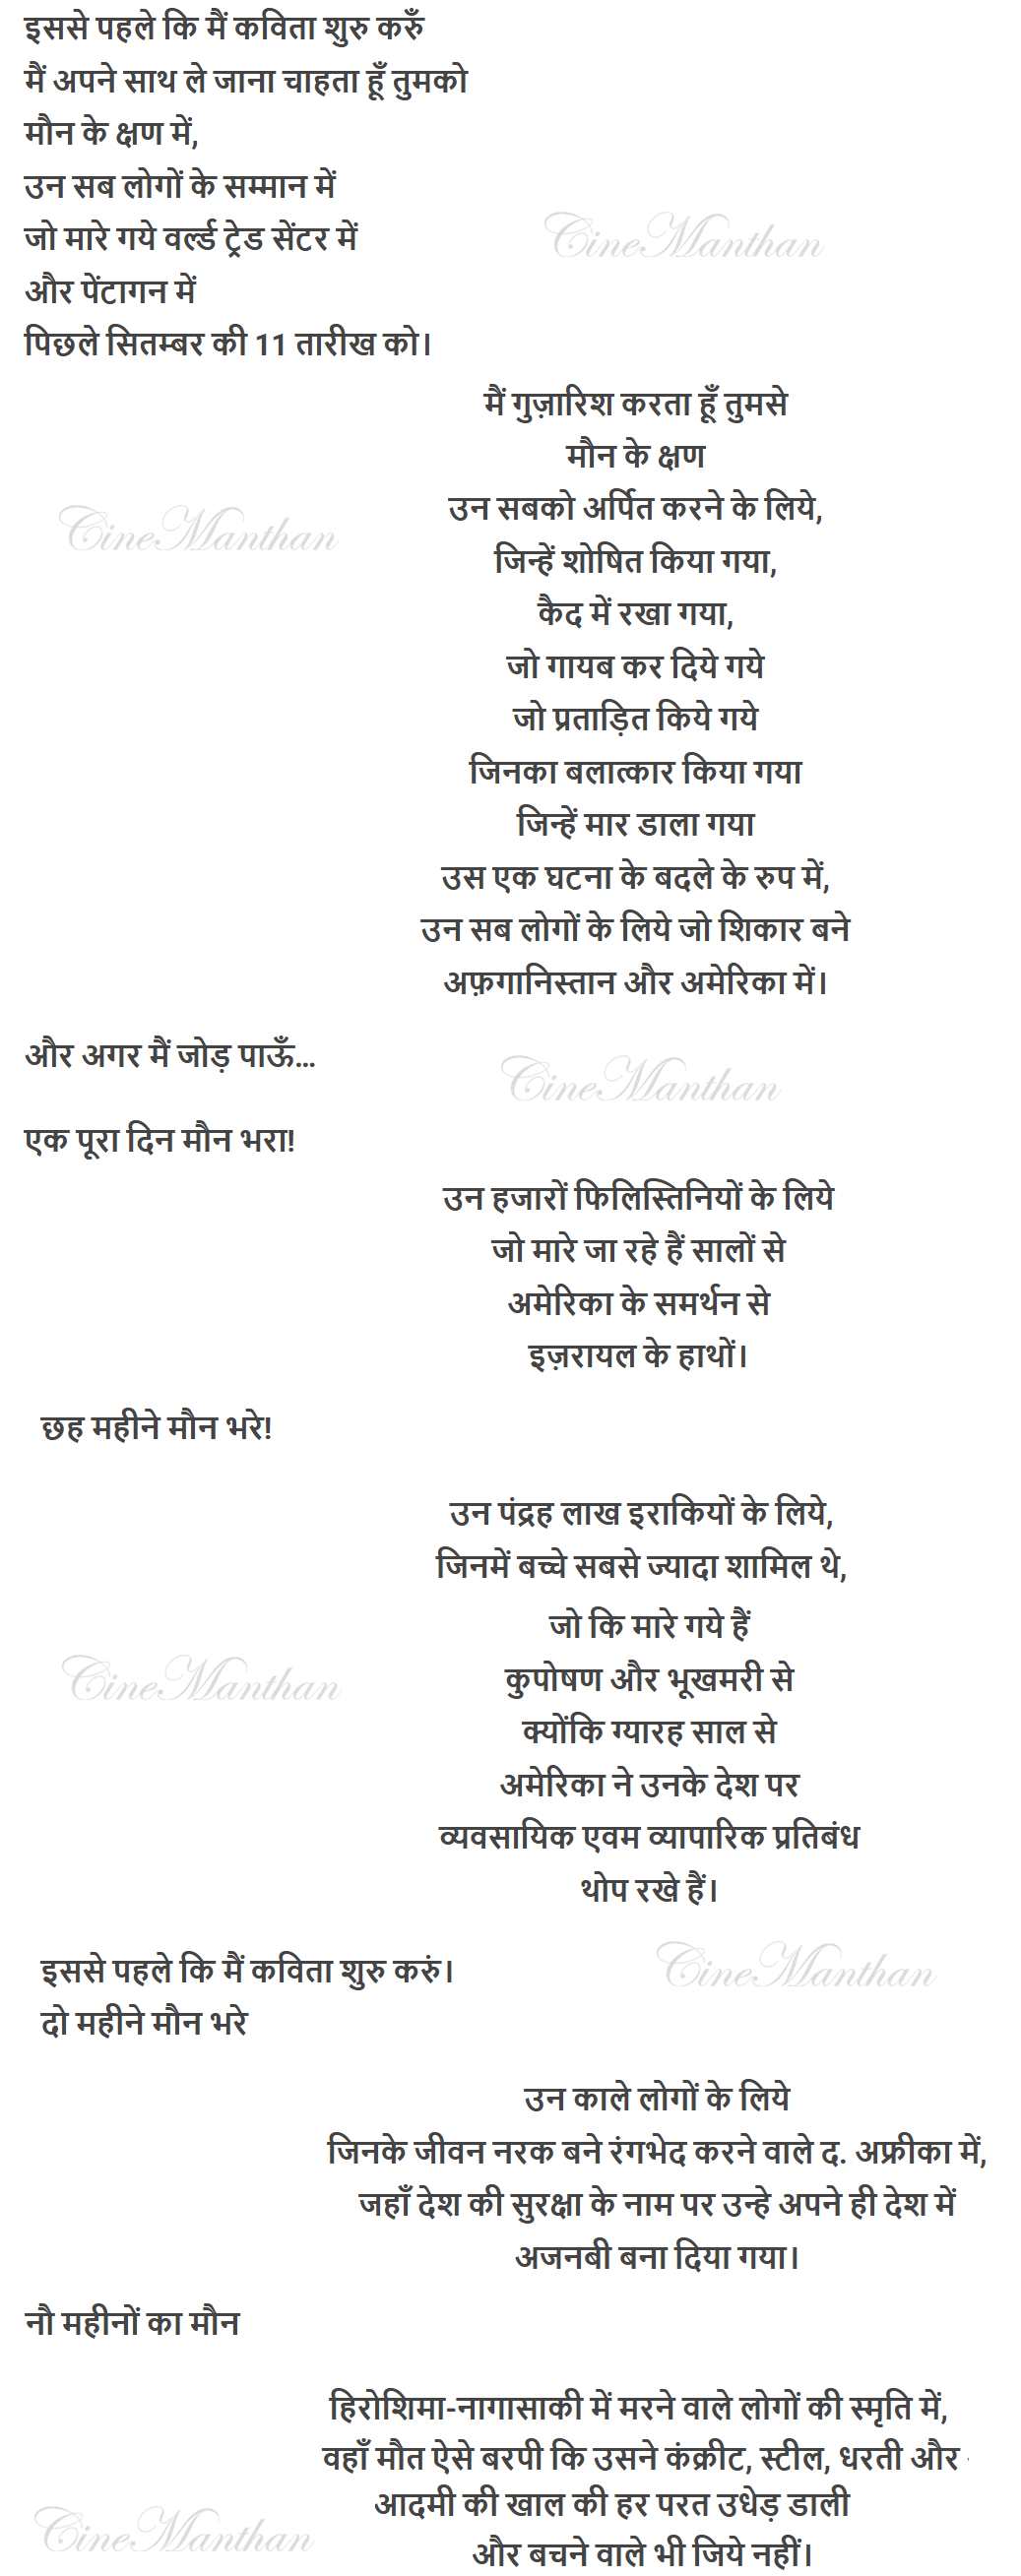 इससे पहले कि मैं कविता शुरु करुँ
मैं अपने साथ ले जाना चाहता हूँ तुमको
मौन के क्षण में,
उन सब लोगों के सम्मान में
जो मारे गये वर्ल्ड ट्रेड सेंटर में
CineManthan
और पेंटागन में
पिछले सितम्बर की 11 तारीख को।
मैं गुज़ारिश करता हूँ तुमसे
मौन के क्षण
उन सबको अर्पित करने के लिये,
CineManthan
जिन्हें शोषित किया गया,
कैद में रखा गया,
जो गायब कर दिये गये
जो प्रताड़ित किये गये
जिनका बलात्कार किया गया
जिन्हें मार डाला गया
उस एक घटना के बदले के रुप में,
उन सब लोगों के लिये जो शिकार बने
अफ़गानिस्तान और अमेरिका में।
और अगर मैं जोड़ पाऊँ...
CineManthan
एक पूरा दिन मौन भरा!
उन हजारों फिलिस्तिनियों के लिये
जो मारे जा रहे हैं सालों से
अमेरिका के समर्थन से
इज़रायल के हाथों।
छह महीने मौन भरे!
उन पंद्रह लाख इराकियों के लिये,
जिनमें बच्चे सबसे ज्यादा शामिल थे,
जो कि मारे गये हैं
कुपोषण और भूखमरी से
CineManthan
क्योंकि ग्यारह साल से
अमेरिका ने उनके देश पर
व्यवसायिक एवम व्यापारिक प्रतिबंध
थोप रखे हैं।
इससे पहले कि मैं कविता शुरु करुं।
CineManthan
दो महीने मौन भरे
उन काले लोगों के लिये
जिनके जीवन नरक बने रंगभेद करने वाले द. अफ्रीका में,
जहाँ देश की सुरक्षा के नाम पर उन्हे अपने ही देश में
अजनबी बना दिया गया।
नौ महीनों का मौन
हिरोशिमा-नागासाकी में मरने वाले लोगों की स्मृति में,
वहाँ मौत ऐसे बरपी कि उसने कंक्रीट, स्टील, धरती और
आदमी की खाल की हर परत उधेड़ डाली
CineManthan
और बचने वाले भी जिये नहीं।